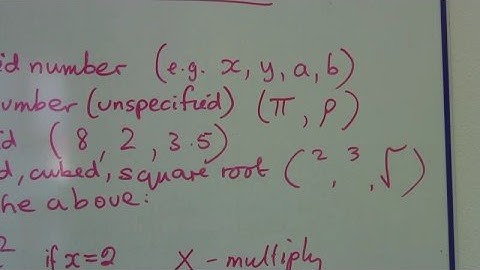 id number (e.g. x, y, a, b)
umber (unspecified) (π, ρ)
id (8, 2, 3.5)
d, cubed, square root (², ³, √)
he above:
2 if x=2 X - multiply